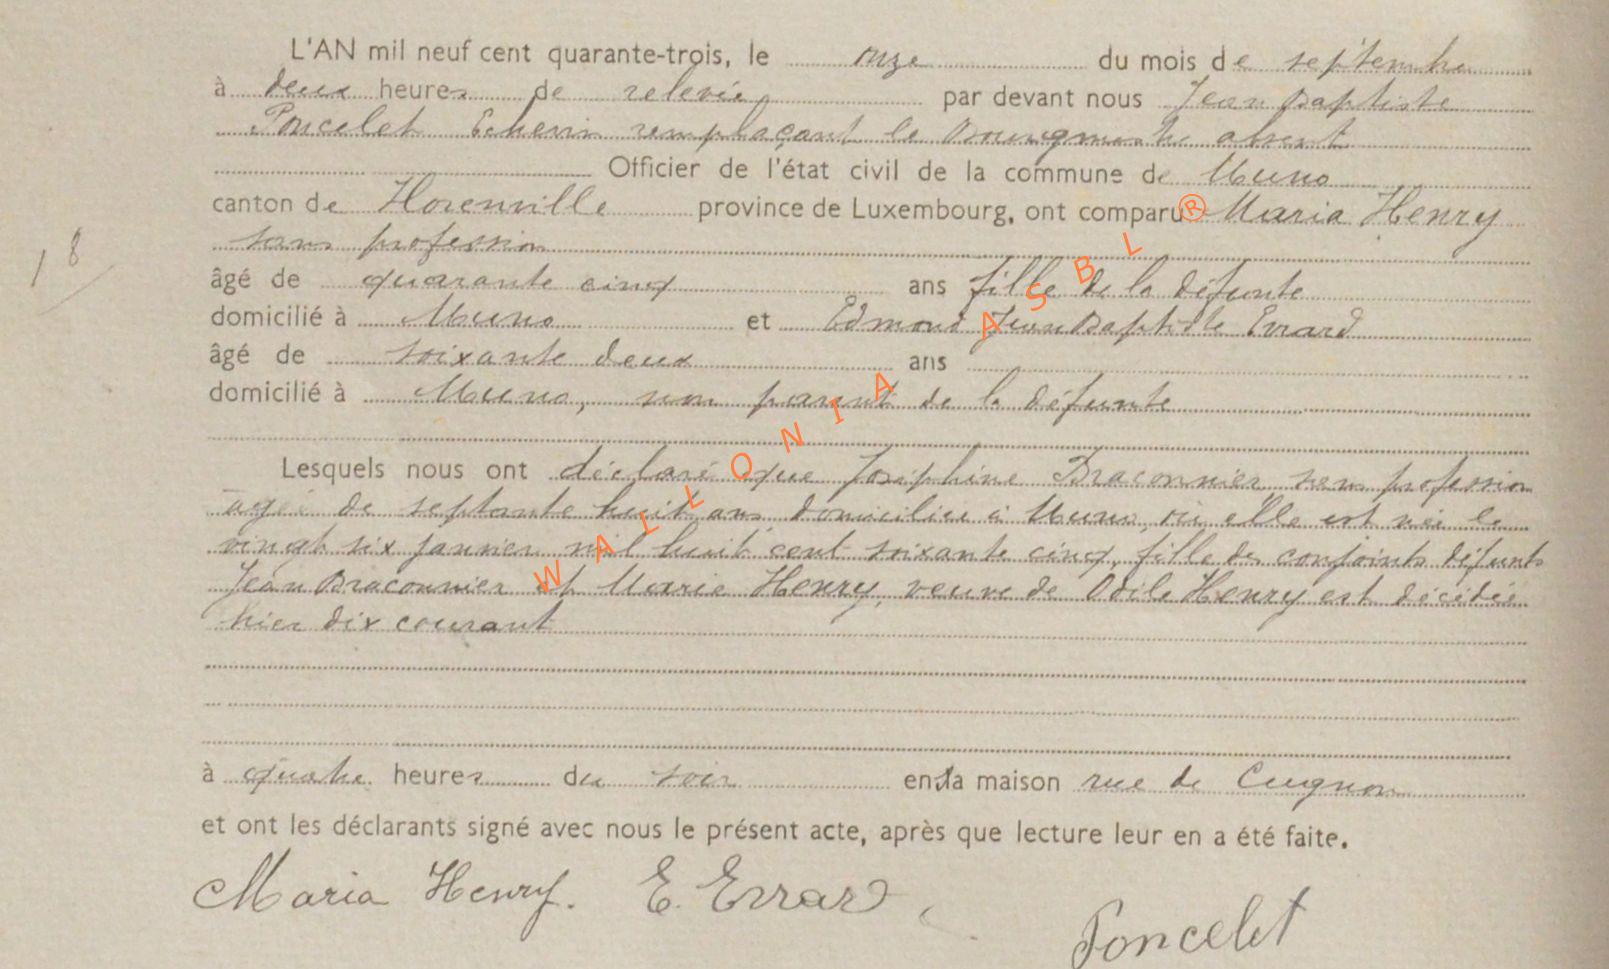 L'AN mil neuf cent quarante-trois, le onze du mois de septembre
à deux heures de relevée par devant nous Jean Baptiste
Poncelet Echevin remplaçant le Bourgmestre absent
Officier de l'état civil de la commune de Muno
canton de Florenville province de Luxembourg, ont comparu Maria Henry
sans profession
18
âgé de quarante cinq ans fille de la défunte
domicilié à Muno et Edmond Jean Baptiste Evrard
âgé de soixante deux ans
domicilié à Muno, non parent de la défunte
Lesquels nous ont déclaré que Joséphine Braconnier sans profession
agée de septante huit ans domiciliée à Muno, où elle est née le
vingt six janvier mil huit cent soixante cinq, fille des conjoints défunts
Jean Braconnier et Marie Henry, veuve de Odile Henry est décédée
hier dix courant
à quatre heures du soir en sa maison rue de Cugnon
et ont les déclarants signé avec nous le présent acte, après que lecture leur en a été faite.
Maria Henry. E. Evrard
Poncelet
WALLONIA ASBL ®